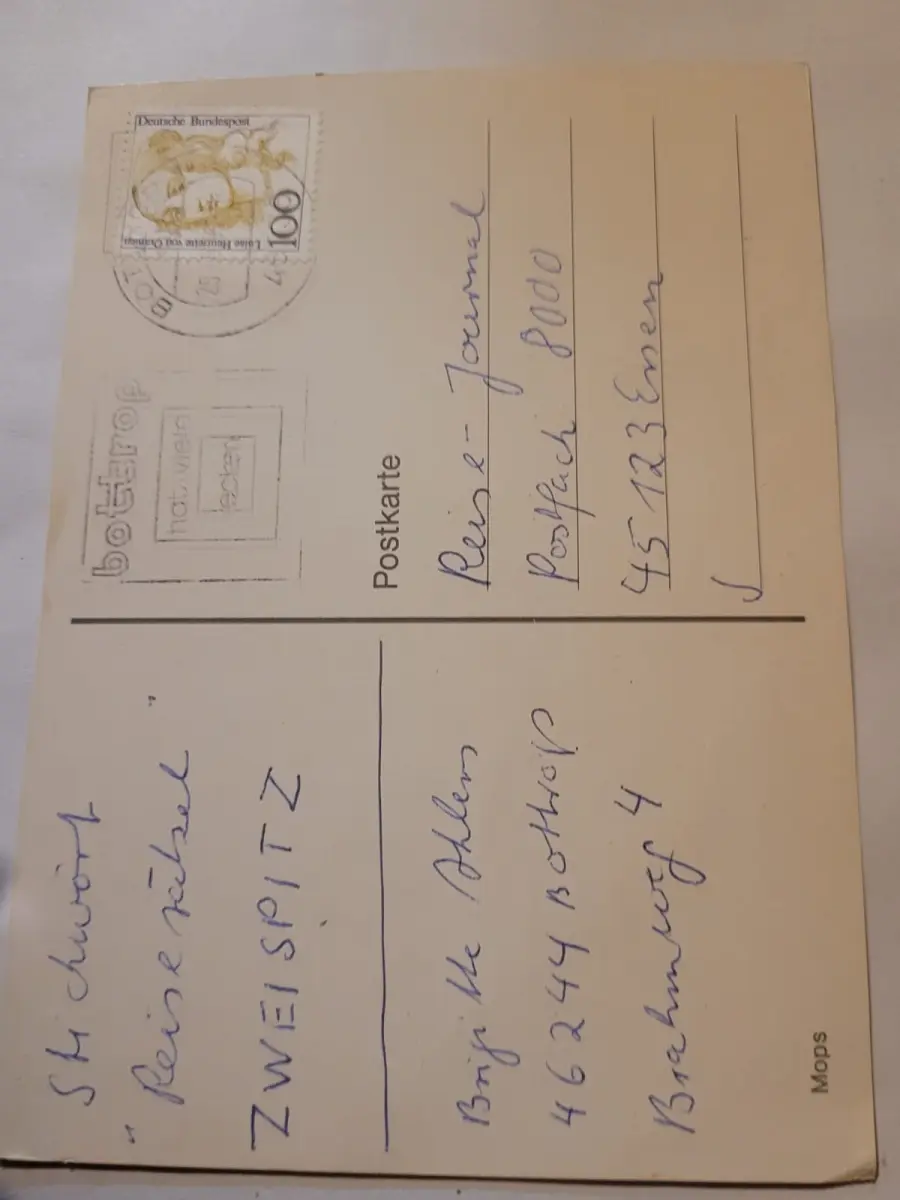 Stichwort
"Reiserätsel"
ZWEISPITZ
Brigitte Ahlers
46244 Bottrop
Brahmweg 4
Mops
bottrop
hat viele
ecken
BOT
Deutsche Bundespost
Luise Henriette von Oranien
100
Postkarte
Reise-Journal
Postfach 8000
45123 Essen